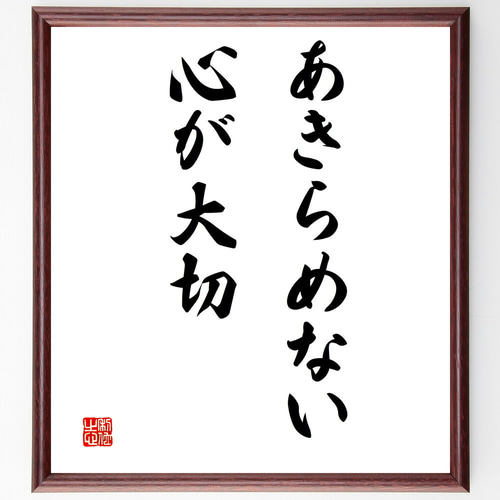 あきらめない
心が大切